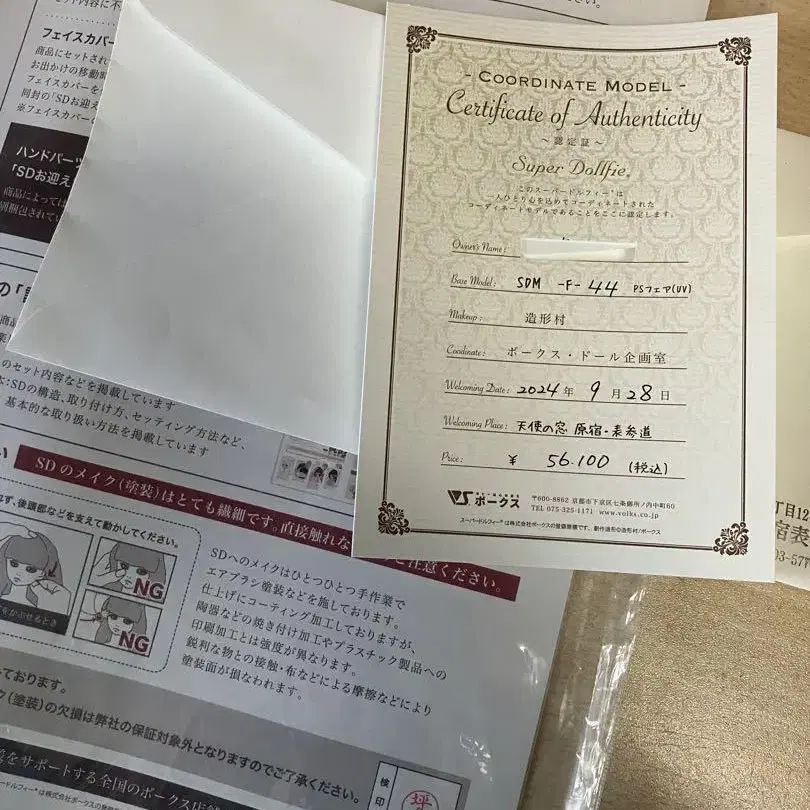 フェイスカバー
商品にセットされ
お出かけの移動
フェイスカバーを
同封の「SDお迎え
※フェイスカバー
ハンドパーツ
「SDお迎え
商品によっては
別梱包されてい
のセット内容などを掲載しています
本:SDの構造、取り付け方、セッティング方法など、
基本的な取り扱い方法を掲載しています
SDのメイク(塗装)はとても繊細です。直接触れな
ご注意ください。
れず、後頭部などを支えて動かしてください。
NG
NG
をかぶせるとき
SDへのメイクはひとつひとつ手作業で
エアブラシ塗装などを施しております。
仕上げにコーティング加工しておりますが、
陶器などの焼き付け加工やプラスチック製品への
印刷加工とは強度が異なります。
鋭利な物との接触・布などによる摩擦などにより
塗装面が損なわれます。
ております。
ク(塗装)の欠損は弊社の保証対象外となりますのでご了承ください。
をサポートする全国のボークス店
検印
- COORDINATE MODEL -
Certificate of Authenticity
～認定証～
Super Dollfie®
このスーパードルフィー®は
一人ひとり心を込めてコーディネートされた
コーディネートモデルであることをここに認定します。
Owner's Name:
Base Model: SDM -F- 44 PSフェア(UV)
Makeup: 造形村
Coodinate: ボークス・ドール企画室
Welcoming Date: 2024年 9月28日
Welcoming Place: 天使の窓 原宿・表参道
Price: ¥ 56.100 (税込)
VS ボークス
〒600-8862 京都市下京区七条御所ノ内中町60
TEL 075-325-1171 www.volks.co.jp
スーパードルフィー®は株式会社ボークスの登録商標です。創作造形©造形村/ボークス
丁目12
宿表
03-577